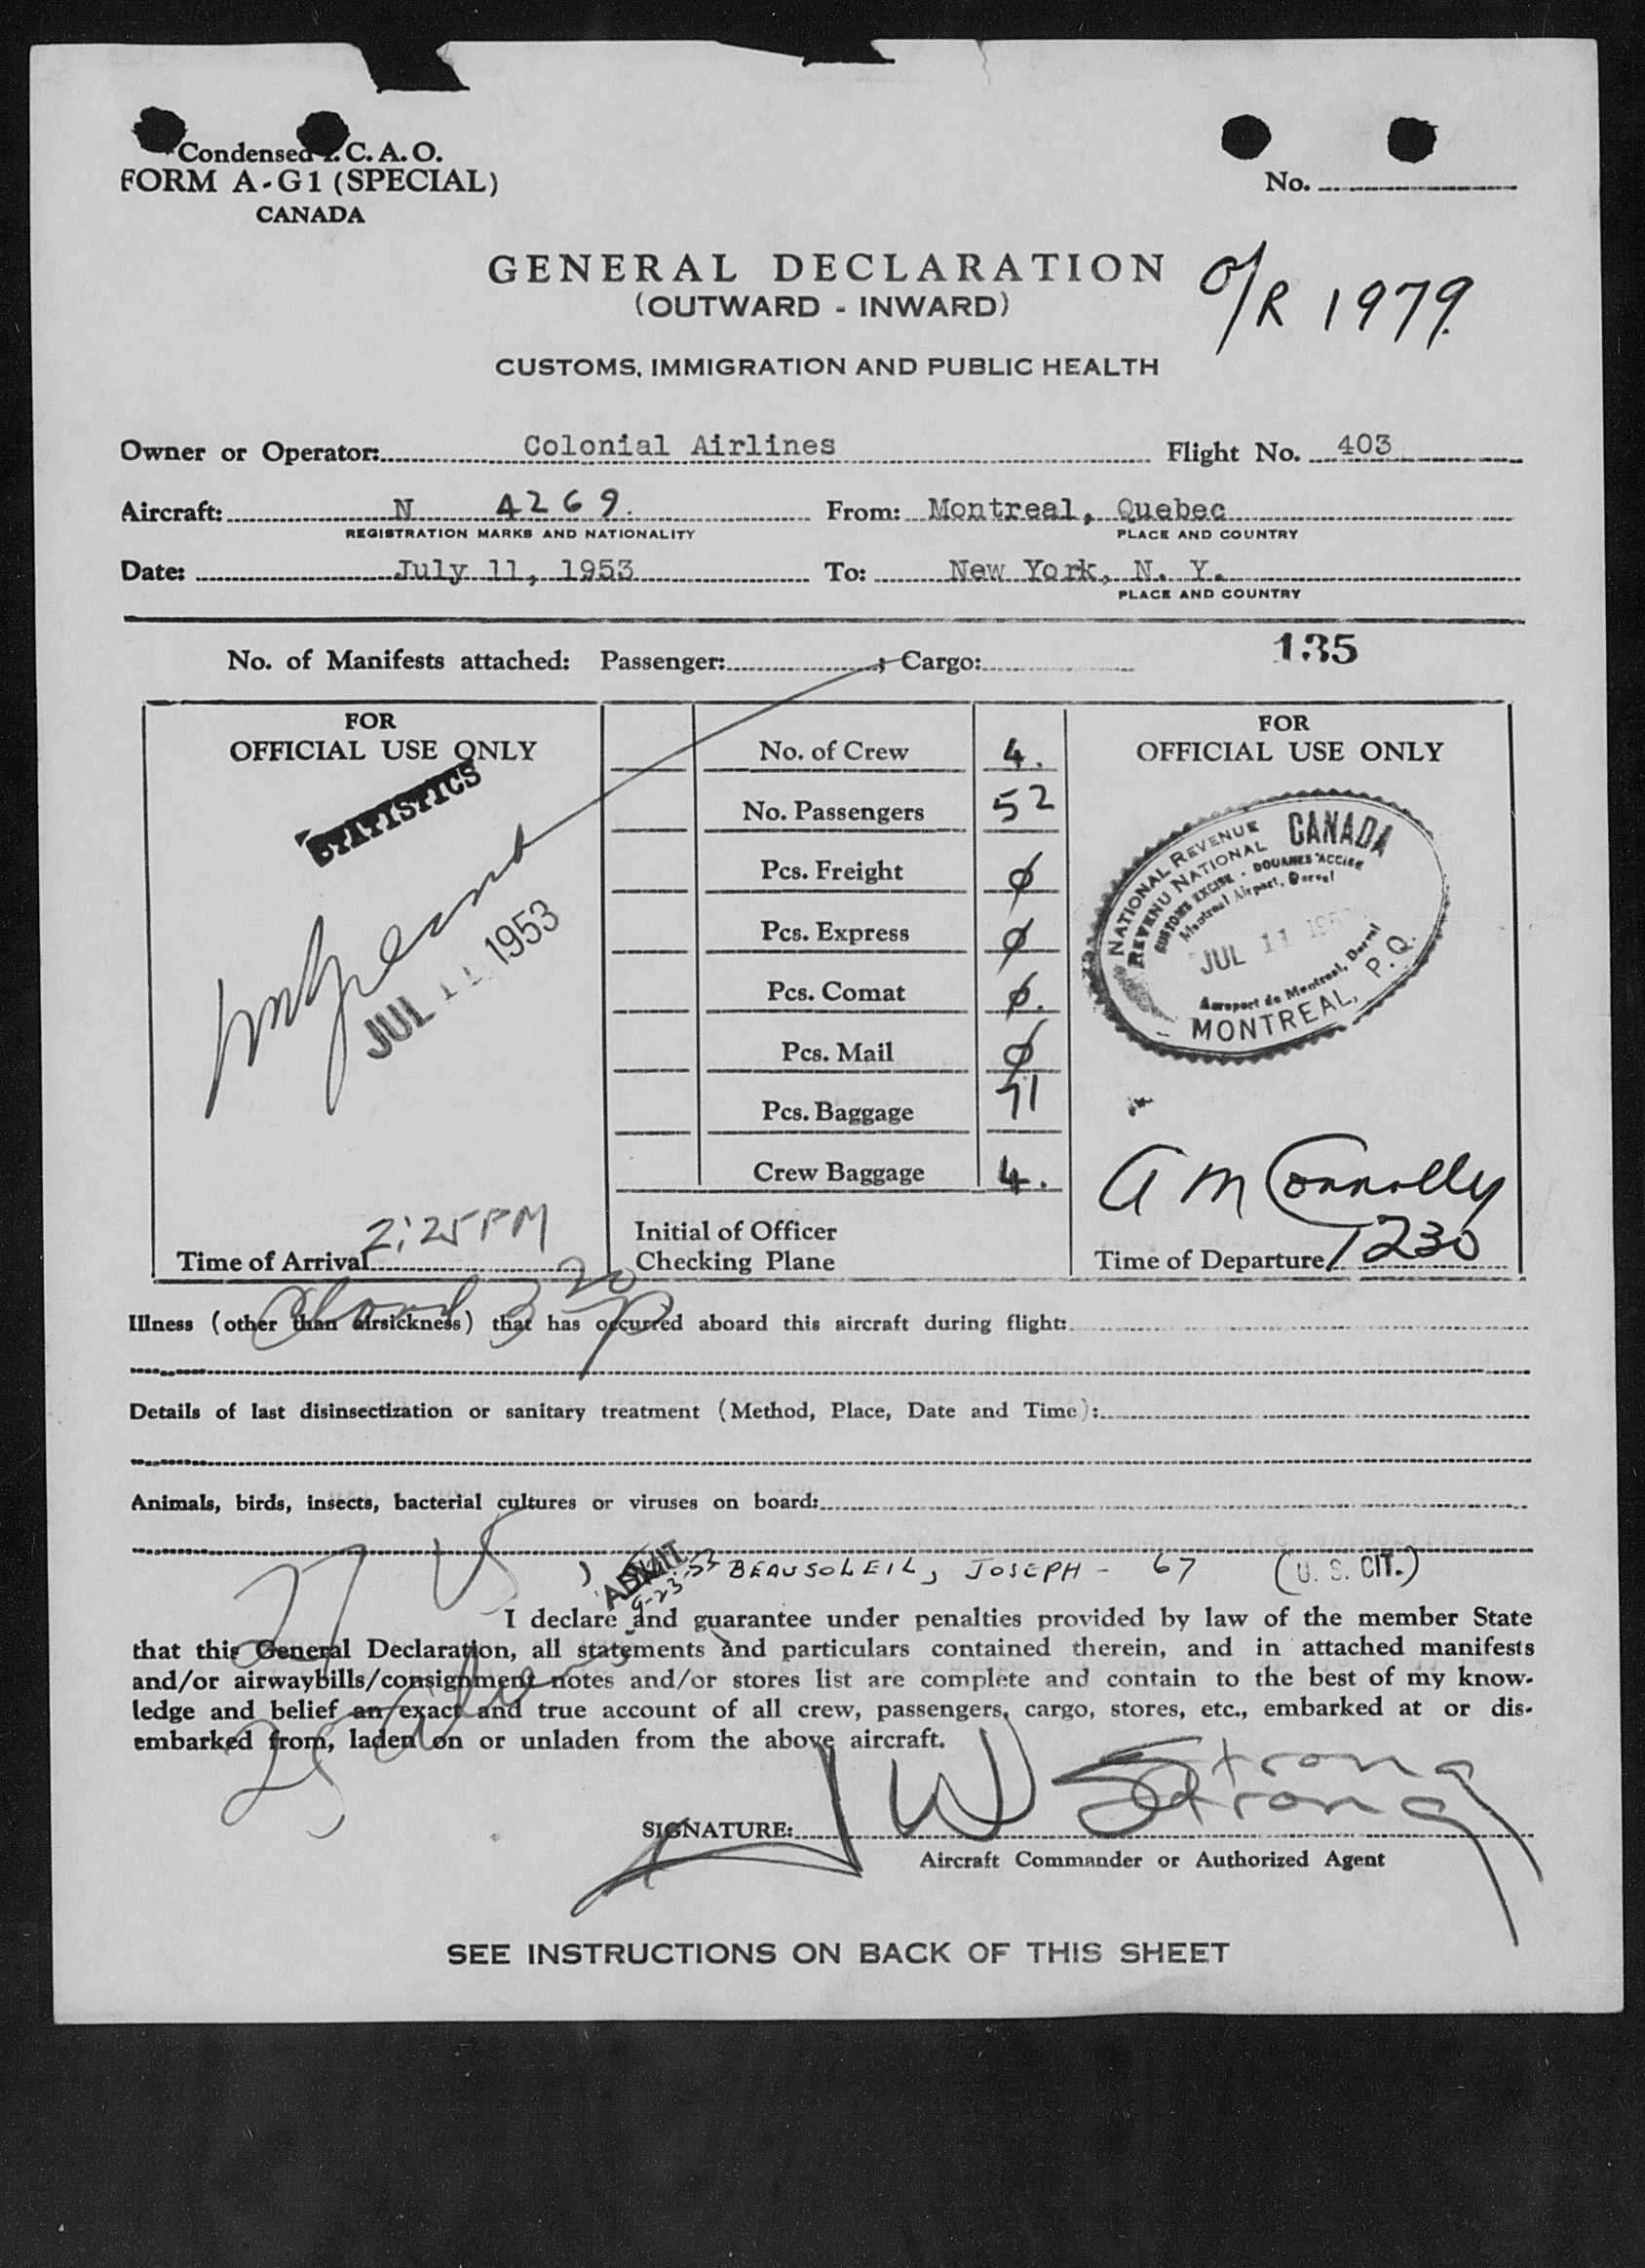 Condensed I. C. A. O.
FORM A-G1 (SPECIAL)
CANADA
No.
GENERAL DECLARATION
(OUTWARD - INWARD)
O/R 1979.
CUSTOMS, IMMIGRATION AND PUBLIC HEALTH
Owner or Operator: Colonial Airlines Flight No. 403
Aircraft: N 4269. From: Montreal, Quebec
REGISTRATION MARKS AND NATIONALITY PLACE AND COUNTRY
Date: July 11, 1953 To: New York, N. Y.
PLACE AND COUNTRY
135
No. of Manifests attached: Passenger: ; Cargo:
FOR
OFFICIAL USE ONLY
STATISTICS
JUL 11 1953
2:25 PM
Time of Arrival
No. of Crew 4.
No. Passengers 52
Pcs. Freight ϕ
Pcs. Express ϕ
Pcs. Comat ϕ.
Pcs. Mail ϕ
Pcs. Baggage 71
Crew Baggage 4.
Initial of Officer
Checking Plane
FOR
OFFICIAL USE ONLY
NATIONAL REVENUE CANADA
REVENU NATIONAL
CUSTOMS EXCISE - DOUANES ACCISE
Montreal Airport, Dorval
JUL 11 195
Aeroport de Montreal, Dorval
MONTREAL, P.Q.
A M Connolly
Time of Departure 1230
3 20 P
Illness (other than airsickness) that has occurred aboard this aircraft during flight:
Details of last disinsectization or sanitary treatment (Method, Place, Date and Time):
Animals, birds, insects, bacterial cultures or viruses on board:
ADMIT 9-23-52 BEAUSOLEIL, JOSEPH - 67 (U. S. CIT.)
I declare and guarantee under penalties provided by law of the member State
that this General Declaration, all statements and particulars contained therein, and in attached manifests
and/or airwaybills/consignment notes and/or stores list are complete and contain to the best of my know-
ledge and belief an exact and true account of all crew, passengers, cargo, stores, etc., embarked at or dis-
embarked from, laden on or unladen from the above aircraft.
W Strong
Strong
SIGNATURE:
Aircraft Commander or Authorized Agent
SEE INSTRUCTIONS ON BACK OF THIS SHEET